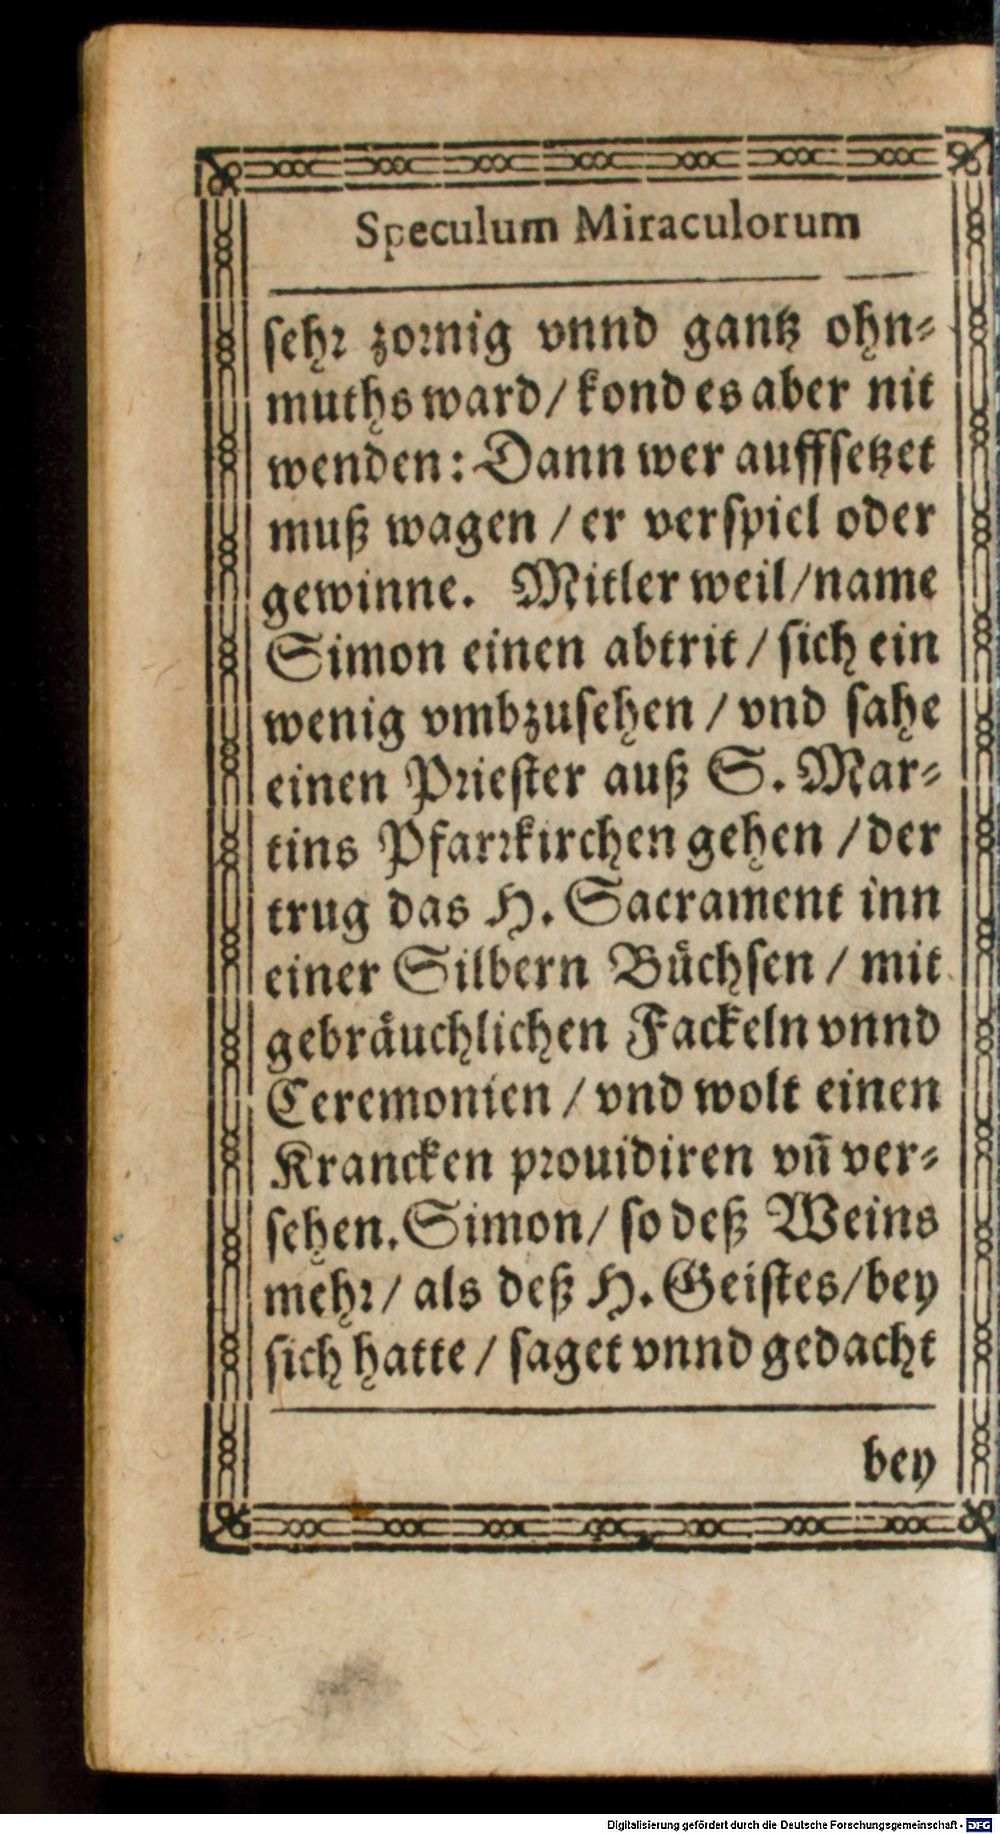 Speculum Miraculorum
sehr zornig vnnd gantz ohn⸗
muths ward/ kond es aber nit
wenden: Dann wer auffsetzet
muß wagen / er verspiel oder
gewinne. Mitler weil/name
Simon einen abtrit / sich ein
wenig vmbzusehen / vnd sahe
einen Priester auß S. Mar⸗
tins Pfarrkirchen gehen / der
trug das H. Sacrament inn
einer Silbern Bůchsen / mit
gebraͤuchlichen Fackeln vnnd
Ceremonien / vnd wolt einen
Krancken prouidiren vn̄ ver⸗
sehen. Simon/ so deß Weins
mehr/ als deß H. Geistes/bey
sich hatte / saget vnnd gedacht
bey
Digitalisierung gefördert durch die Deutsche Forschungsgemeinschaft - DFG